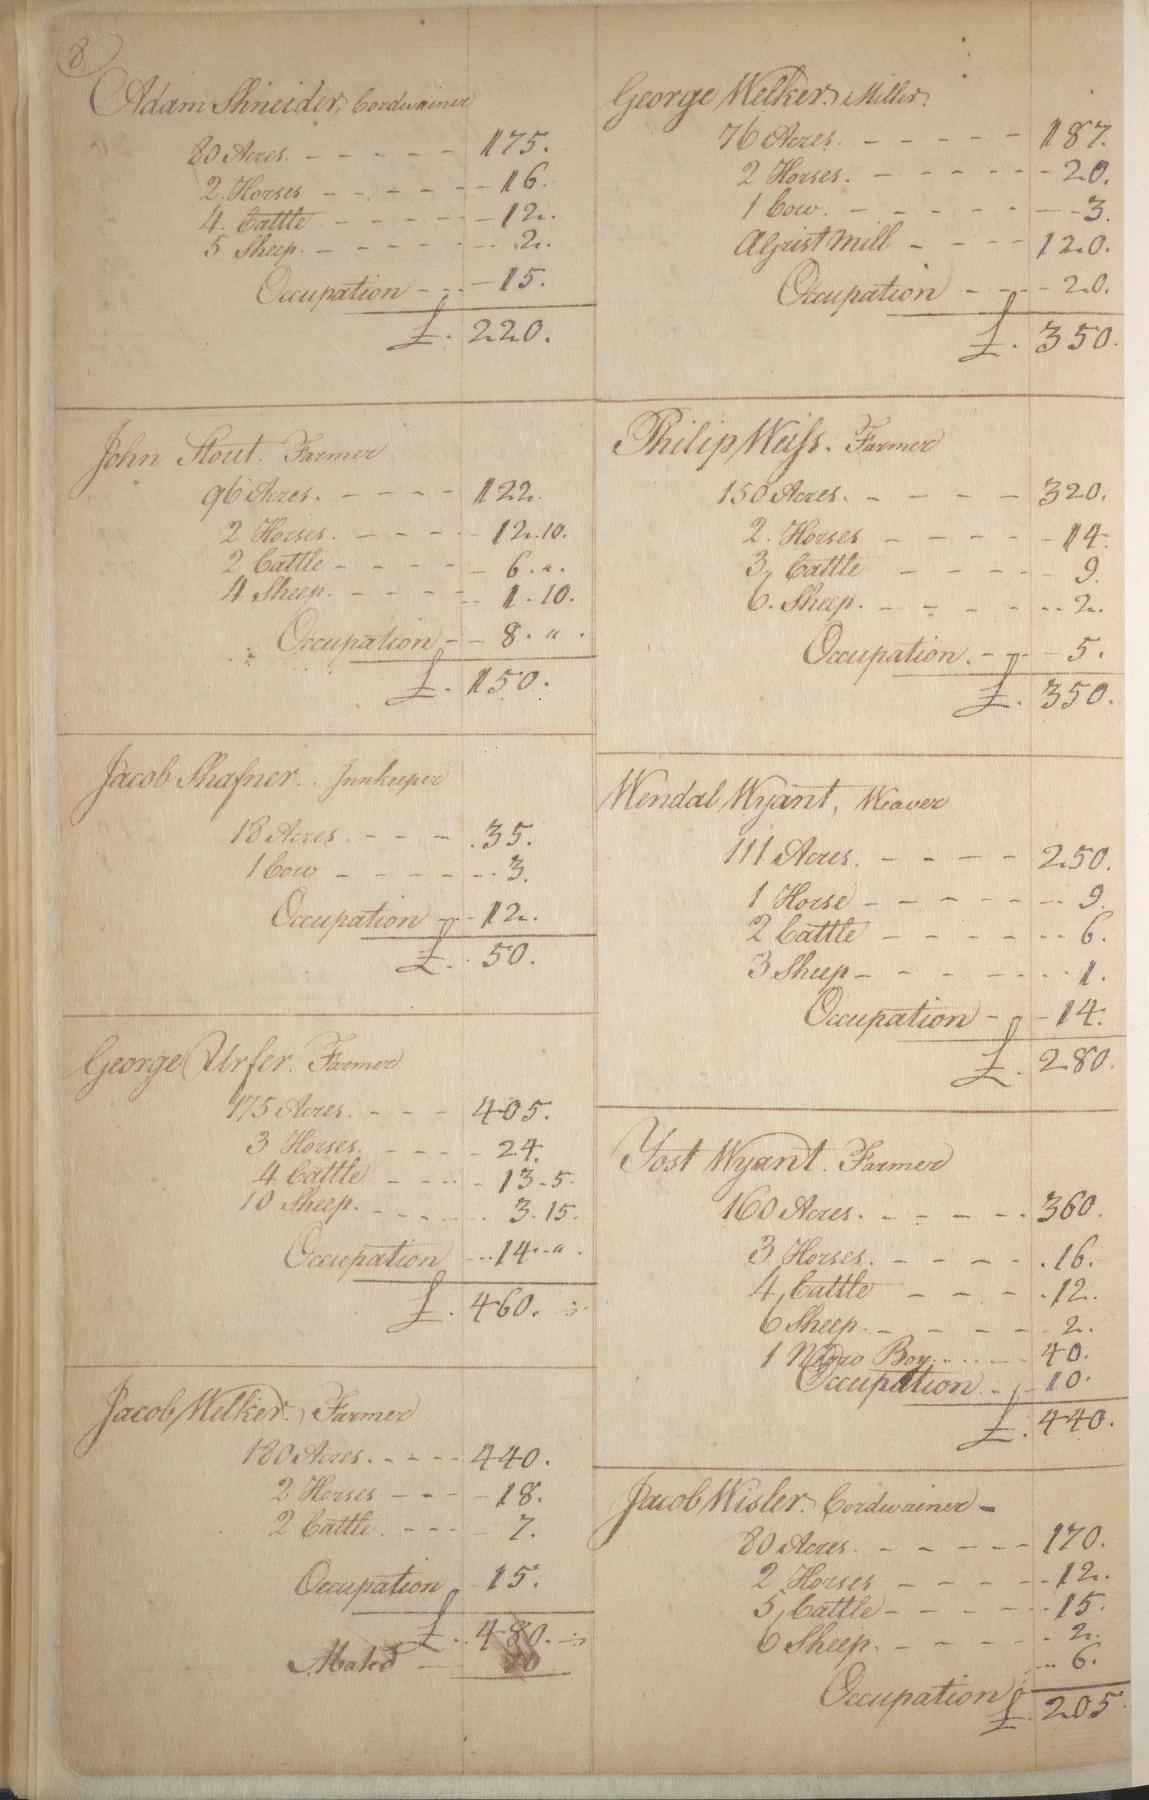 8.
Adam Shneider, Cordwainer
80 Acres. - - - - - 175.
2 Horses - - - - - 16.
4. Cattle - - - - - 12.
5 Sheep. - - - - - 2.
Occupation - - - 15.
£. 220.
John Stout. Farmer
96 Acres. - - - - 122.
2 Horses. - - - - 12.10.
2 Cattle - - - - - 6.".
4 Sheep. - - - - 1.10.
Occupation - - 8. " .
£. 150.
Jacob Shafner. Innkeeper
18 Acres. - - - 35.
1 Cow - - - - - 3.
Occupation - - 12.
£. 50.
George Urfer. Farmer
175 Acres. - - - 405.
3 Horses. - - - - 24.
4 Cattle - - - - 13-5.
10 Sheep. - - - - 3.15.
Occupation - - 14. " .
£. 460.
Jacob Welker. Farmer
180 Acres. - - - - 440.
2 Horses - - - - 18.
2 Cattle. - - - - 7.
Occupation 15.
£. 480.
Abated -
George Welker. Miller.
76 Acres. - - - - - 187.
2 Horses. - - - - - 20.
1 Cow. - - - - - - 3.
A Grist Mill - - - - 120.
Occupation - - - 20.
£. 350.
Philip Weiss. Farmer
150 Acres. - - - - 320.
2. Horses - - - - - 14.
3, Cattle - - - - - 9.
6. Sheep. - - - - - 2.
Occupation. - - - 5.
£. 350.
Wendal Wyant, Weaver
111 Acres. - - - - 250.
1 Horse - - - - - - 9.
2 Cattle - - - - - 6.
3 Sheep - - - - - 1.
Occupation - - 14.
£. 280.
Yost Wyant. Farmer
160 Acres. - - - - - 360.
3 Horses. - - - - - 16.
4, Cattle - - - - 12.
6 Sheep. - - - - - 2.
1 Negro Boy. - - - - 40.
Occupation. - - 10.
£. 440.
Jacob Wisler. Cordwainer -
80 Acres. - - - - - 170.
2 Horses - - - - - 12.
5, Cattle - - - - - 15.
6 Sheep. - - - - - 2.
Occupation 6.
£. 205.